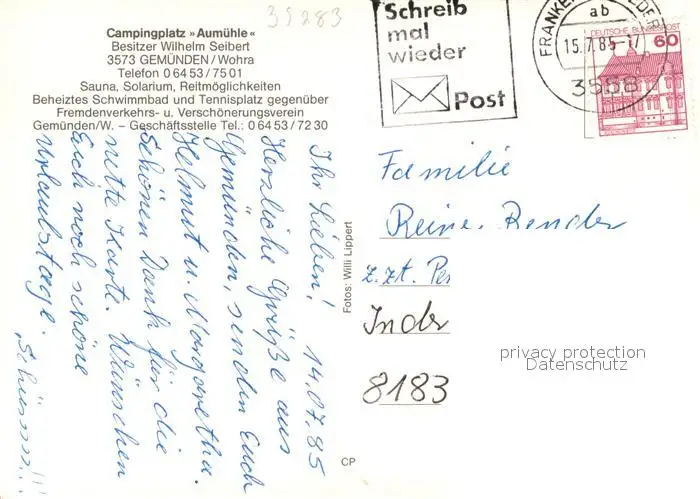 35283
Campingplatz »Aumühle«
Besitzer Wilhelm Seibert
3573 GEMÜNDEN/Wohra
Telefon 0 64 53 / 75 01
Sauna, Solarium, Reitmöglichkeiten
Beheiztes Schwimmbad und Tennisplatz gegenüber
Fremdenverkehrs- u. Verschönerungsverein
Gemünden/W. – Geschäftsstelle Tel.: 0 64 53 / 72 30
Ihr Lieben! 14.07.85
Herzliche Grüße aus
Gemünden, senden Euch
Helmut u. Margaretha.
Schönen Dank für die
nette Karte. Wünschen
Euch noch schöne
Urlaubstage.
Tschüssss!!!
Fotos: Willi Lippert
CP
Schreib
mal
wieder
Post
FRANKEN
ab
15.7.85-17
3558
DEUTSCHE BUNDESPOST
60
Familie
Reiner Bender
z.Zt. Pe
Inder
8183
privacy protection
Datenschutz